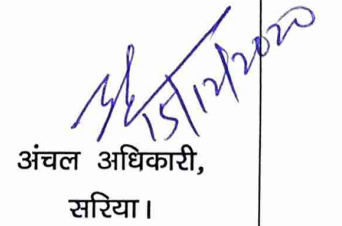 15/12/2020
अंचल अधिकारी,
सरिया।